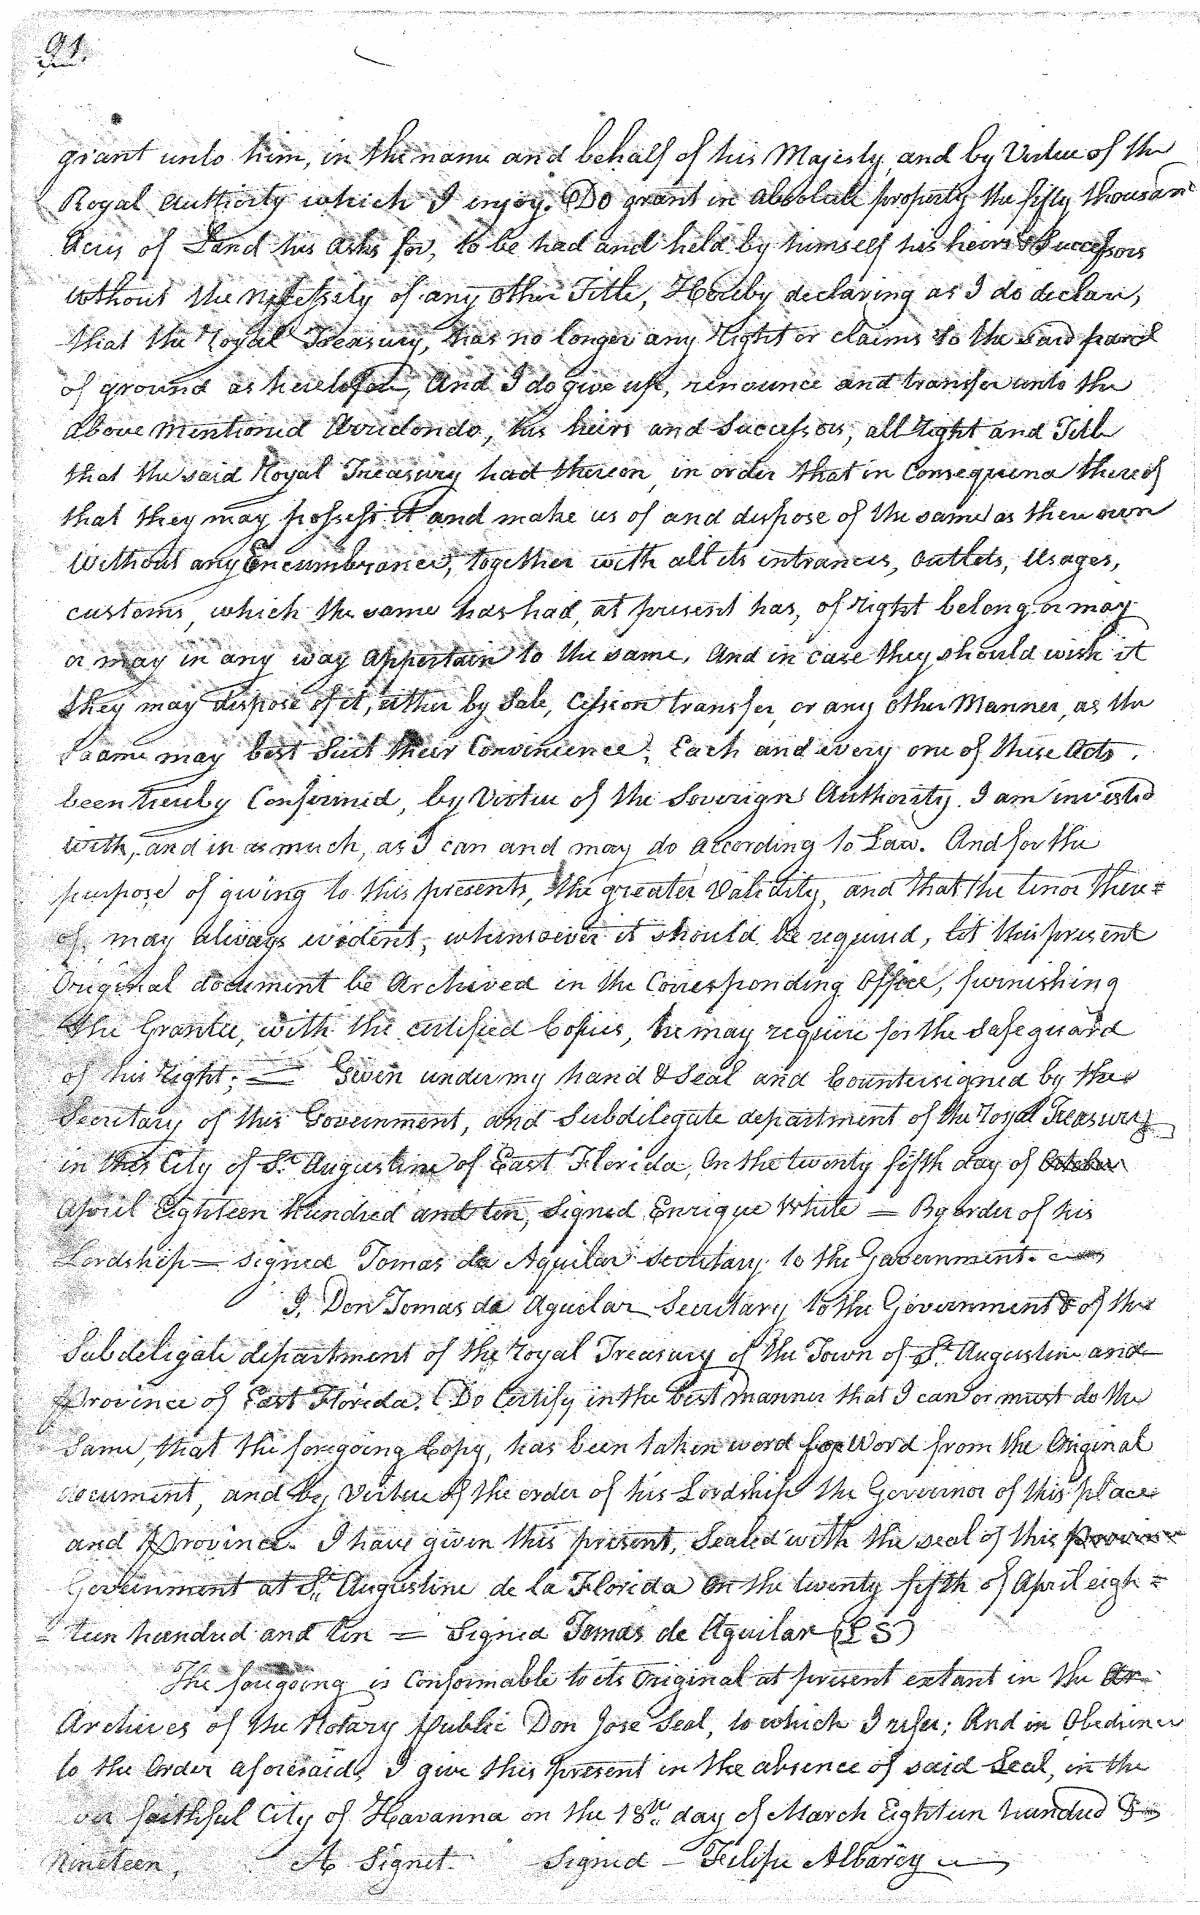 91.
grant unto him, in the name and behalf of his Majesty, and by Virtue of the
Royal Authority which I enjoy. Do grant in absolute property the fifty thousand
Acres of Land his asks for, to be had and held by himself his heirs & Successors
without the Necessity of any other Title, Hereby declaring as I do declare,
that the Royal Treasury, has no longer any right or claims to the said parcel
of ground as heretofore, And I do give up, renounce and transfer unto the
above mentioned Arredondo, his heirs and Successors, all right and Title
that the said Royal Treasury had thereon, in order that in Consequence thereof
that they may possess it and make us of and dispose of the same as their own
Without any Encumbrance, together with all its entrances, outlets, usages,
customs, which the same has had, at present has, of right belong or may
or may in any way appertain to the same. And in case they should wish it
they may dispose of it, either by Sale, Cession transfer, or any other Manner, as the
Same may best Suit their Convenience, Each and every one of these Acts
been hereby Confirmed, by Virtue of the Soverign Authority I am invested
with, and in as much, as I can and may do according to Law. And for the
purpose of giving to this presents, the greater Validity, and that the tenor there=
of, may always evident, whensoever it should be required, let this present
Original document be Archived in the Corresponding Office, furnishing
the Grantee, with the certified Copies, he may require for the safeguard
of his right; = Given under my hand & Seal and Countersigned by the
Secretary of this Government, and Subdelegate department of the Royal Treasury
in this City of St. Augustine of East Florida, On the twenty fifth day of October
April Eighteen Hundred and ten, signed Enrique White = By order of his
Lordship = signed Tomas de Aguilar secretary to the Government.
I, Don Tomas de Aguilar Secretary to the Government & of the
Subdeligate department of the Royal Treasury of the Town of St. Augustine and
Province of East Florida. Do Certify in the best manner that I can or must do the
Same, that the foregoing Copy, has been taken word for Word from the Original
document, and by Virtue of the order of his Lordship the Governor of this place
and Province. I have given this present, Sealed with the seal of this Province
Government at St. Augustine de la Florida On the twenty fifth of April eigh=
=teen hundred and ten = Signed Tomas de Aguilar (L S)
The foregoing is Conformable to its Original at present extant in the Ar
Archives of the Notary Public Don Jose Seal, to which I refer; And in Obedience
to the Order aforesaid, I give this present in the absence of said Seal, in the
ever faithful City of Havanna on the 18th. day of March Eighteen hundred &
Nineteen, A Signet. Signed - Felipe Albarey